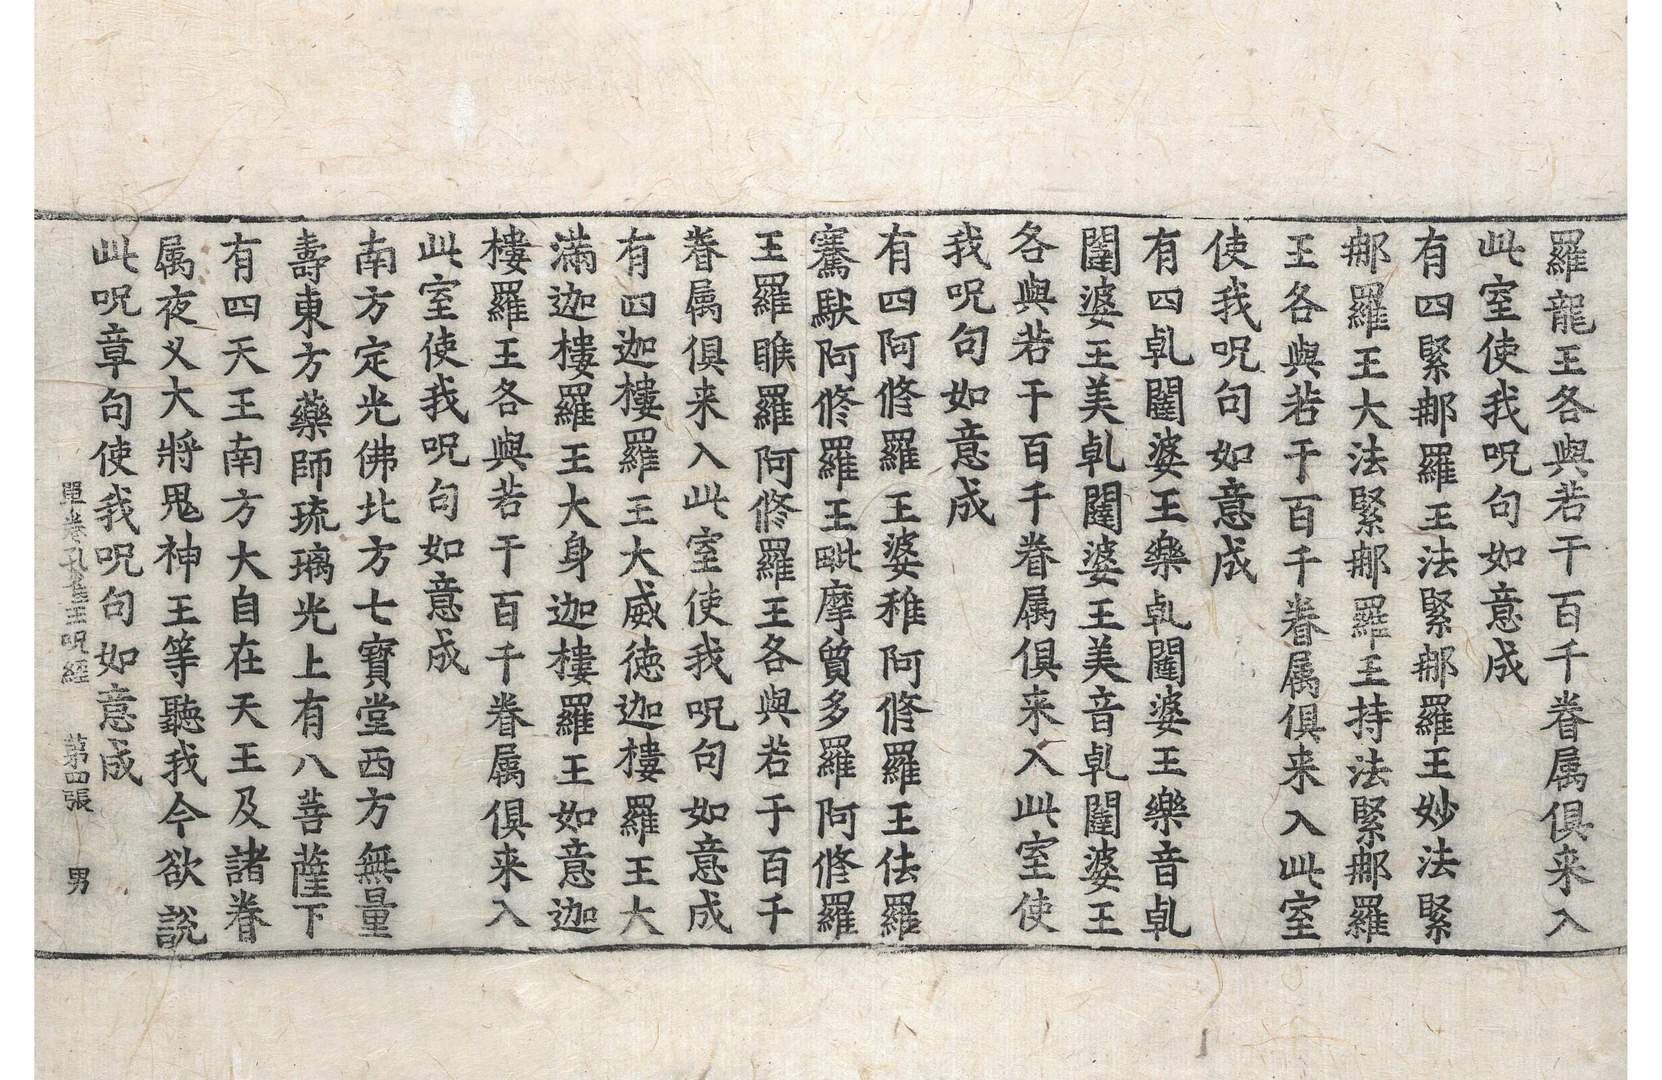 羅龍王各與若干百千眷属俱来入
此室使我呪句如意成
有四緊郍羅王法緊郍羅王妙法緊
郍羅王大法緊郍羅王持法緊郍羅
王各與若干百千眷属俱来入此室
使我呪句如意成
有四乹闥婆王樂乹闥婆王樂音乹
闥婆王美乹闥婆王美音乹闥婆王
各與若干百千眷属俱来入此室使
我呪句如意成
有四阿修羅王婆稚阿修羅王佉羅
騫䭾阿修羅王毗摩質多羅阿修羅
王羅睺羅阿修羅王各與若干百千
眷属俱来入此室使我呪句如意成
有四迦樓羅王大威徳迦樓羅王大
滿迦樓羅王大身迦樓羅王如意迦
樓羅王各與若干百千眷属俱来入
此室使我呪句如意成
南方定光佛北方七寳堂西方無量
壽東方藥師琉璃光上有八菩薩下
有四天王南方大自在天王及諸眷
属夜叉大將鬼神王等聽我今欲說
此呪章句使我呪句如意成
單卷孔雀王呪經　第四張　男